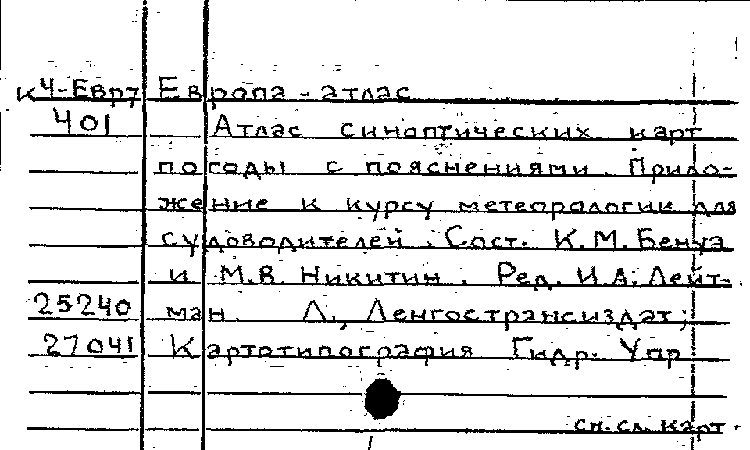 К4-Европ Европа - атлас
401 Атлас синоптических карт
погоды с пояснениями. Прило-
жение к курсу метеорологии для
судоводителей. Сост. К.М. Бенуа
и М.В. Никитин. Ред. И.А. Лейт-
25240 ман. Л., Ленгострансиздат;
27041 Картотипография Гидр. Упр
см. сл. карт.